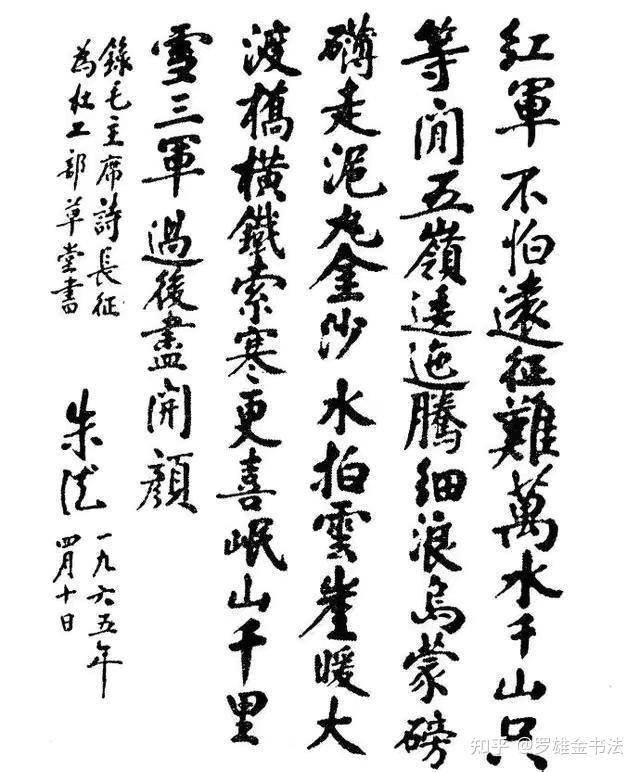 紅軍不怕遠征難萬水千山只
等閒五嶺逶迤騰細浪烏蒙磅
礴走泥丸金沙水拍雲崖暖大
渡橋橫鐵索寒更喜岷山千里
雪三軍過後盡開顏
錄毛主席詩長征
為杜工部草堂書
朱德
一九六五年
四月十日
知乎 @罗雄金书法